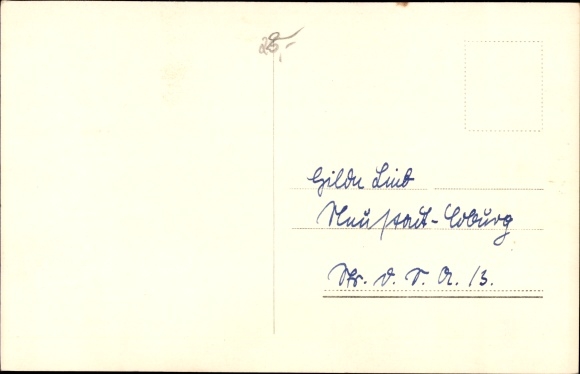 25,-
Gilde Lind
Neustadt-Coburg
Str. d. S. A. 13.